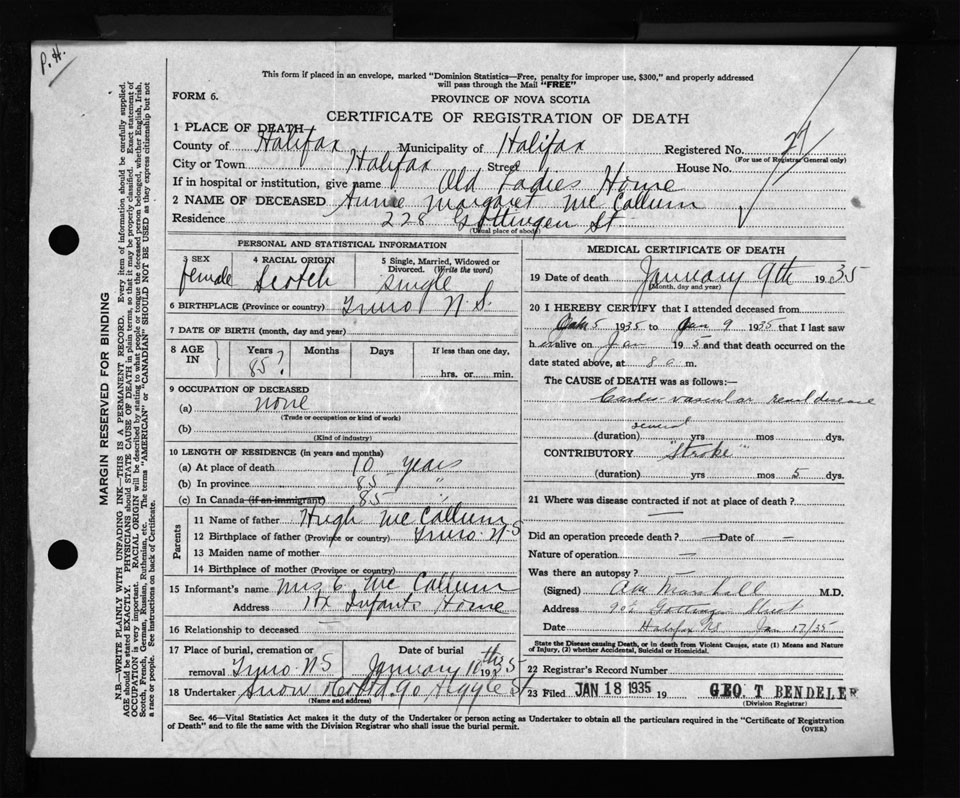 P. H.
This form if placed in an envelope, marked "Dominion Statistics—Free, penalty for improper use, $300," and properly addressed
will pass through the Mail "FREE"
FORM 6.
PROVINCE OF NOVA SCOTIA
CERTIFICATE OF REGISTRATION OF DEATH
1 PLACE OF DEATH—
County of Halifax Municipality of Halifax Registered No.
(For use of Registrar General only)
City or Town Halifax Street House No.
If in hospital or institution, give name Old Ladies Home
2 NAME OF DECEASED Annie Margaret McCallum
Residence 228 Gottingen St
(Usual place of abode)
PERSONAL AND STATISTICAL INFORMATION
3 SEX
female
4 RACIAL ORIGIN
Scotch
5 Single, Married, Widowed or
Divorced. (Write the word)
Single
6 BIRTHPLACE (Province or country) Truro N.S.
7 DATE OF BIRTH (month, day and year)
8 AGE IN
Years Months Days If less than one day,
85? hrs. or min.
9 OCCUPATION OF DECEASED
(a) none
(Trade or occupation or kind of work)
(b)
(Kind of industry)
10 LENGTH OF RESIDENCE (in years and months)
(a) At place of death 10 years
(b) In province 85 "
(c) In Canada (if an immigrant) 85 "
Parents
11 Name of father Hugh McCallum
12 Birthplace of father (Province or country) Truro N.S
13 Maiden name of mother
14 Birthplace of mother (Province or country)
15 Informant's name Mrs C. McCallum
Address Hx Infants Home
16 Relationship to deceased —
17 Place of burial, cremation or Date of burial
removal Truro NS January 10th 1935
18 Undertaker Snow 90 Argyle St
(Name and address)
MEDICAL CERTIFICATE OF DEATH
19 Date of death January 9th 1935
(Month, day and year)
20 I HEREBY CERTIFY that I attended deceased from
5 1935 to Jan 9 1935 that I last saw
her alive on Jan 1935 and that death occurred on the
date stated above, at 8 a m.
The CAUSE of DEATH was as follows:—
Cardio-vascular renal disease
several
(duration) yrs mos dys.
CONTRIBUTORY "Stroke"
(duration) yrs mos 5 dys.
21 Where was disease contracted if not at place of death? —
Did an operation precede death? — Date of —
Nature of operation —
Was there an autopsy? —
(Signed) Marshall M.D.
Address Gottingen Street
Date Halifax NS Jan 17/35
State the Disease causing Death, or in Death from Violent Causes, state (1) Means and Nature
of Injury, (2) whether Accidental, Suicidal or Homicidal.
22 Registrar's Record Number
23 Filed JAN 18 1935 19 GEO. T BENDELER
(Division Registrar)
Sec. 46—Vital Statistics Act makes it the duty of the Undertaker or person acting as Undertaker to obtain all the particulars required in the "Certificate of Registration
of Death" and to file the same with the Division Registrar who shall issue the burial permit.
(OVER)
MARGIN RESERVED FOR BINDING
N.B.—WRITE PLAINLY WITH UNFADING INK—THIS IS A PERMANENT RECORD. Every item of information should be carefully supplied.
AGE should be stated EXACTLY. PHYSICIANS should STATE CAUSE OF DEATH in plain terms, so that it may be properly classified. Exact statement of
OCCUPATION is very important. RACIAL ORIGIN will be described by stating to what people or tongue the deceased person belonged, whether English, Irish,
Scotch, French, German, Russian, Ruthenian, etc. The terms "AMERICAN" or "CANADIAN" SHOULD NOT BE USED as they express citizenship but not
a race or people. See instructions on back of Certificate.